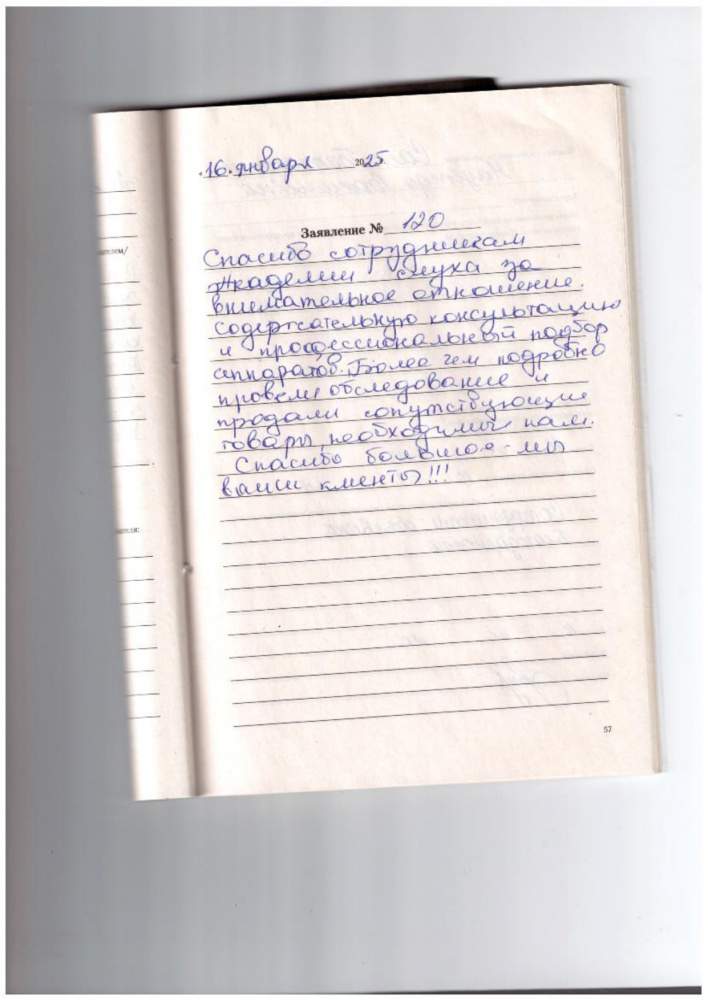 16 января 2025
Заявление № 120
Спасибо сотрудникам
Академии слуха за
внимательное отношение.
содержательную консультацию
и профессиональный подбор
аппаратов. Более чем подробно
провели обследование и
продали сопутствующие
товары, необходимые нам.
Спасибо большое - мы
ваши клиенты!!!
57